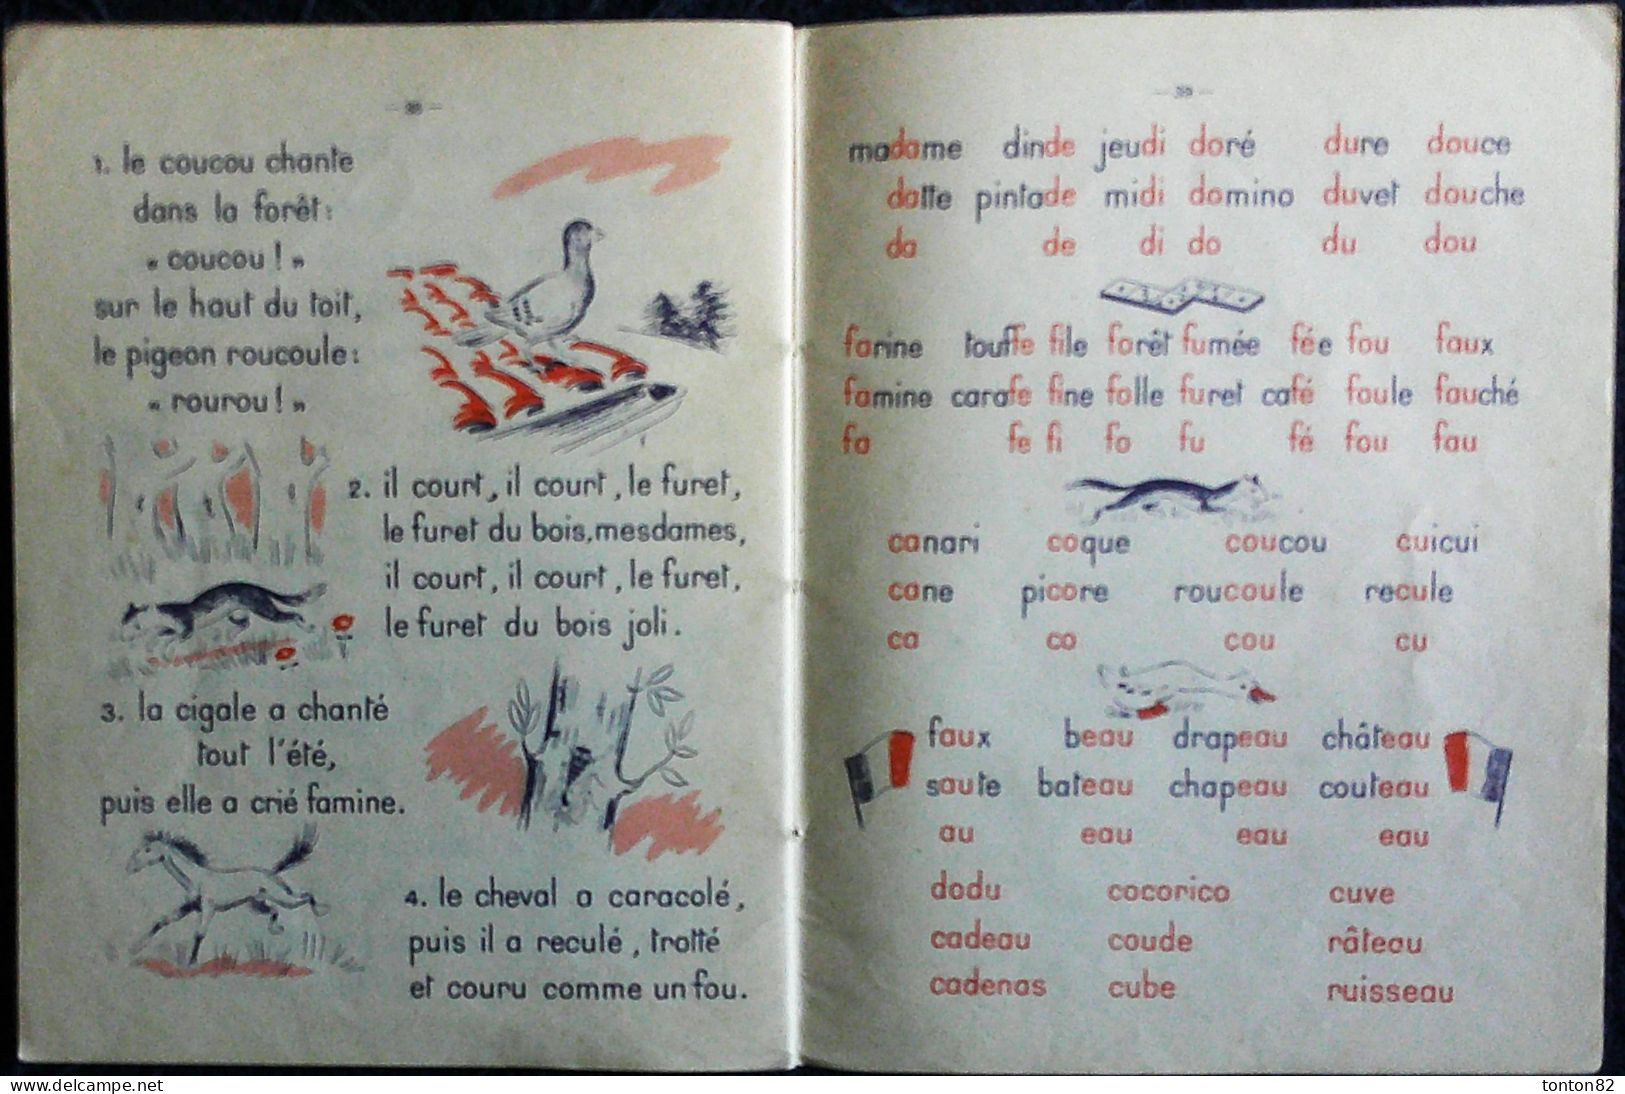 1. le coucou chante
dans la forêt :
« coucou ! »
sur le haut du toit,
le pigeon roucoule :
« rourou ! »
2. il court, il court, le furet,
le furet du bois, mesdames,
il court, il court, le furet,
le furet du bois joli.
3. la cigale a chanté
tout l'été,
puis elle a crié famine.
4. le cheval a caracolé,
puis il a reculé, trotté
et couru comme un fou.
madame dinde jeudi doré dure douce
datte pintade midi domino duvet douche
da de di do du dou
farine touffe file forêt fumée fée fou faux
famine carafe fine folle furet café foule fauché
fa fe fi fo fu fé fou fau
canari coque coucou cuicui
cane picore roucoule recule
ca co cou cu
faux beau drapeau château
saute bateau chapeau couteau
au eau eau eau
dodu cocorico cuve
cadeau coude râteau
cadenas cube ruisseau
https://www.delcampe.net
tonton82